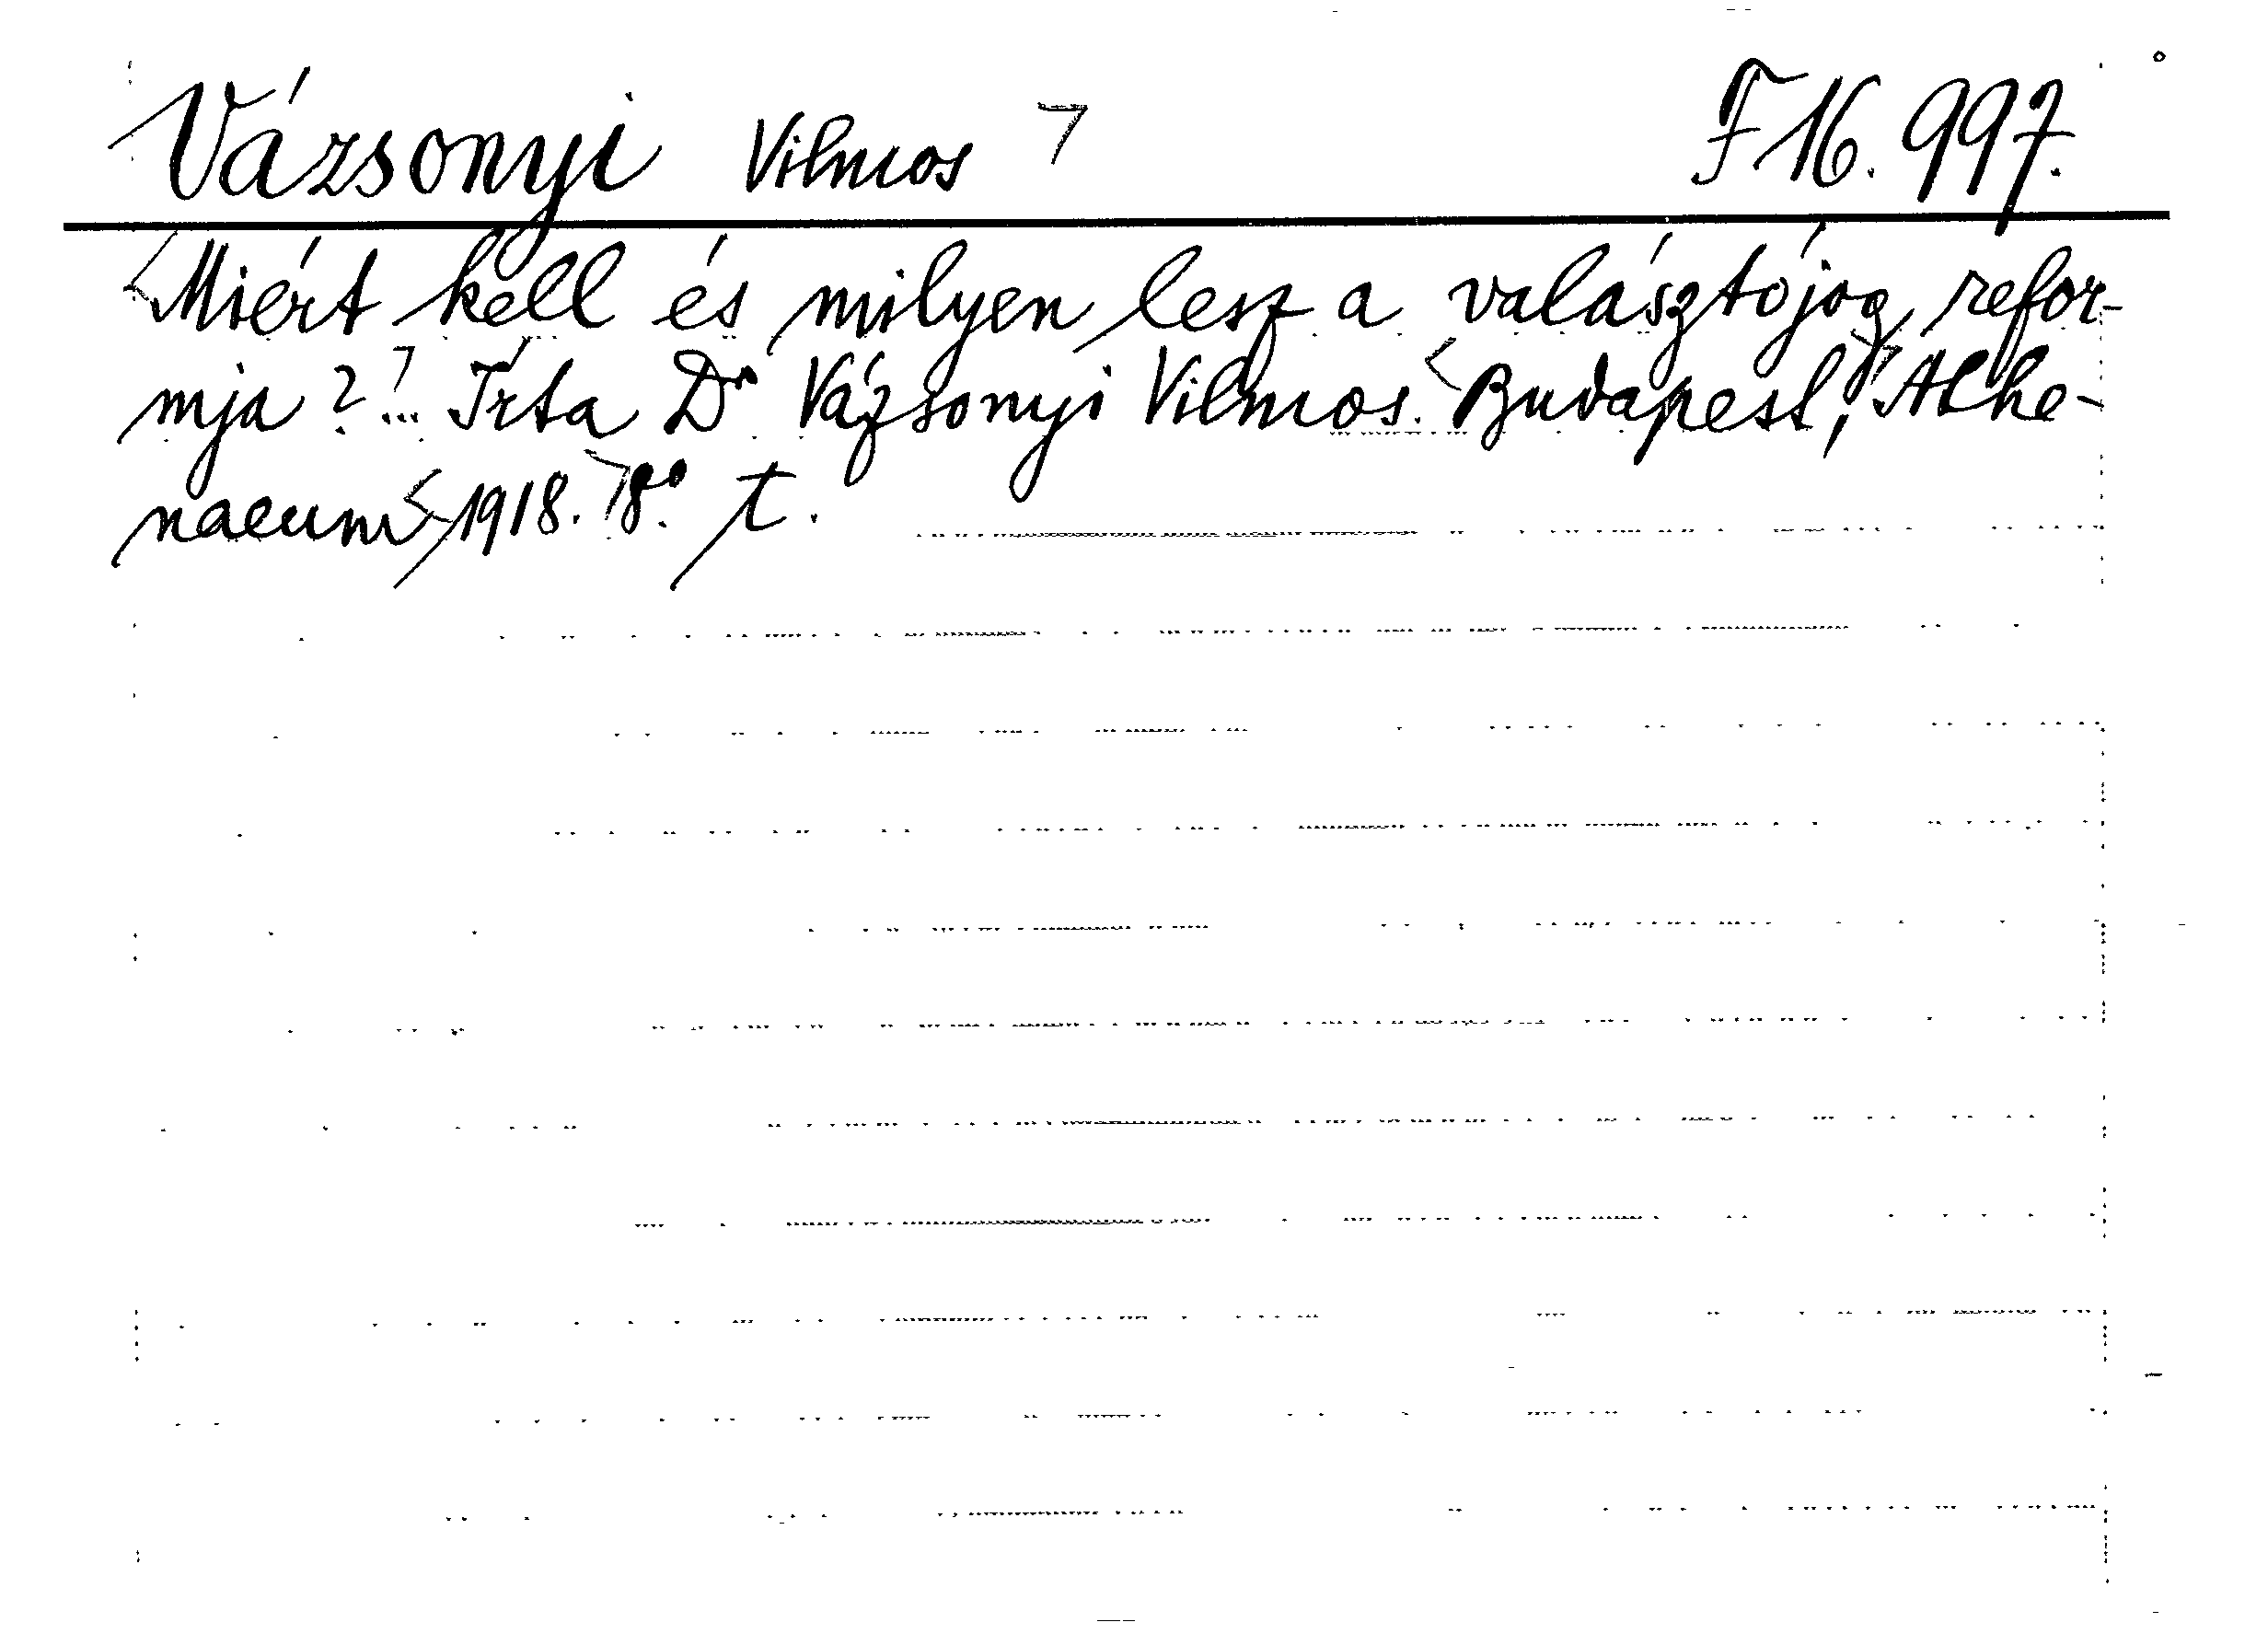 Vázsonyi Vilmos F 16.997.
Miért kell és milyen lesz a választójog refor-
mja?... Írta Dr Vázsonyi Vilmos. Budapest, Athe-
naeum 1918. 8°. t.